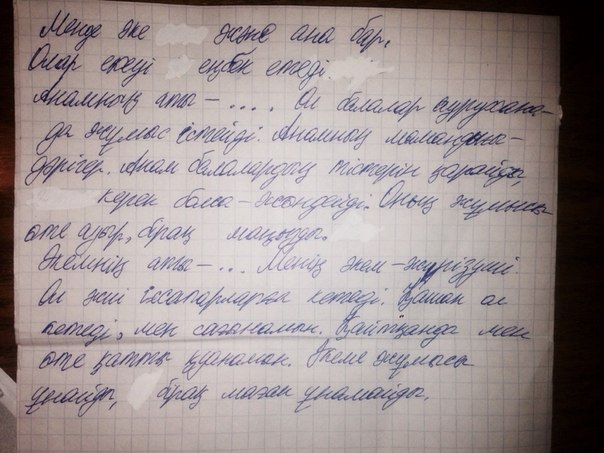 Менде әке және ана бар,
Олар екеуі еңбек етеді
Анамның аты - .... Ол балалар аурухана-
да жұмыс істейді. Анамның мамандығы -
дәрігер. Анам балалардың тістерін қарайды,
керек болса - жөндейді. Оның жұмысы
өте ауыр, бірақ маңызды.
Әкемнің аты - ... Менің әкем - жүргізуші
Ол жиі іссапарларға кетеді. Қашан ол
кетеді, мен сағынамын. Қайтқанда мен
өте қатты қуанамын. Әкеме жұмысы
ұнайды, бірақ маған ұнамайды.